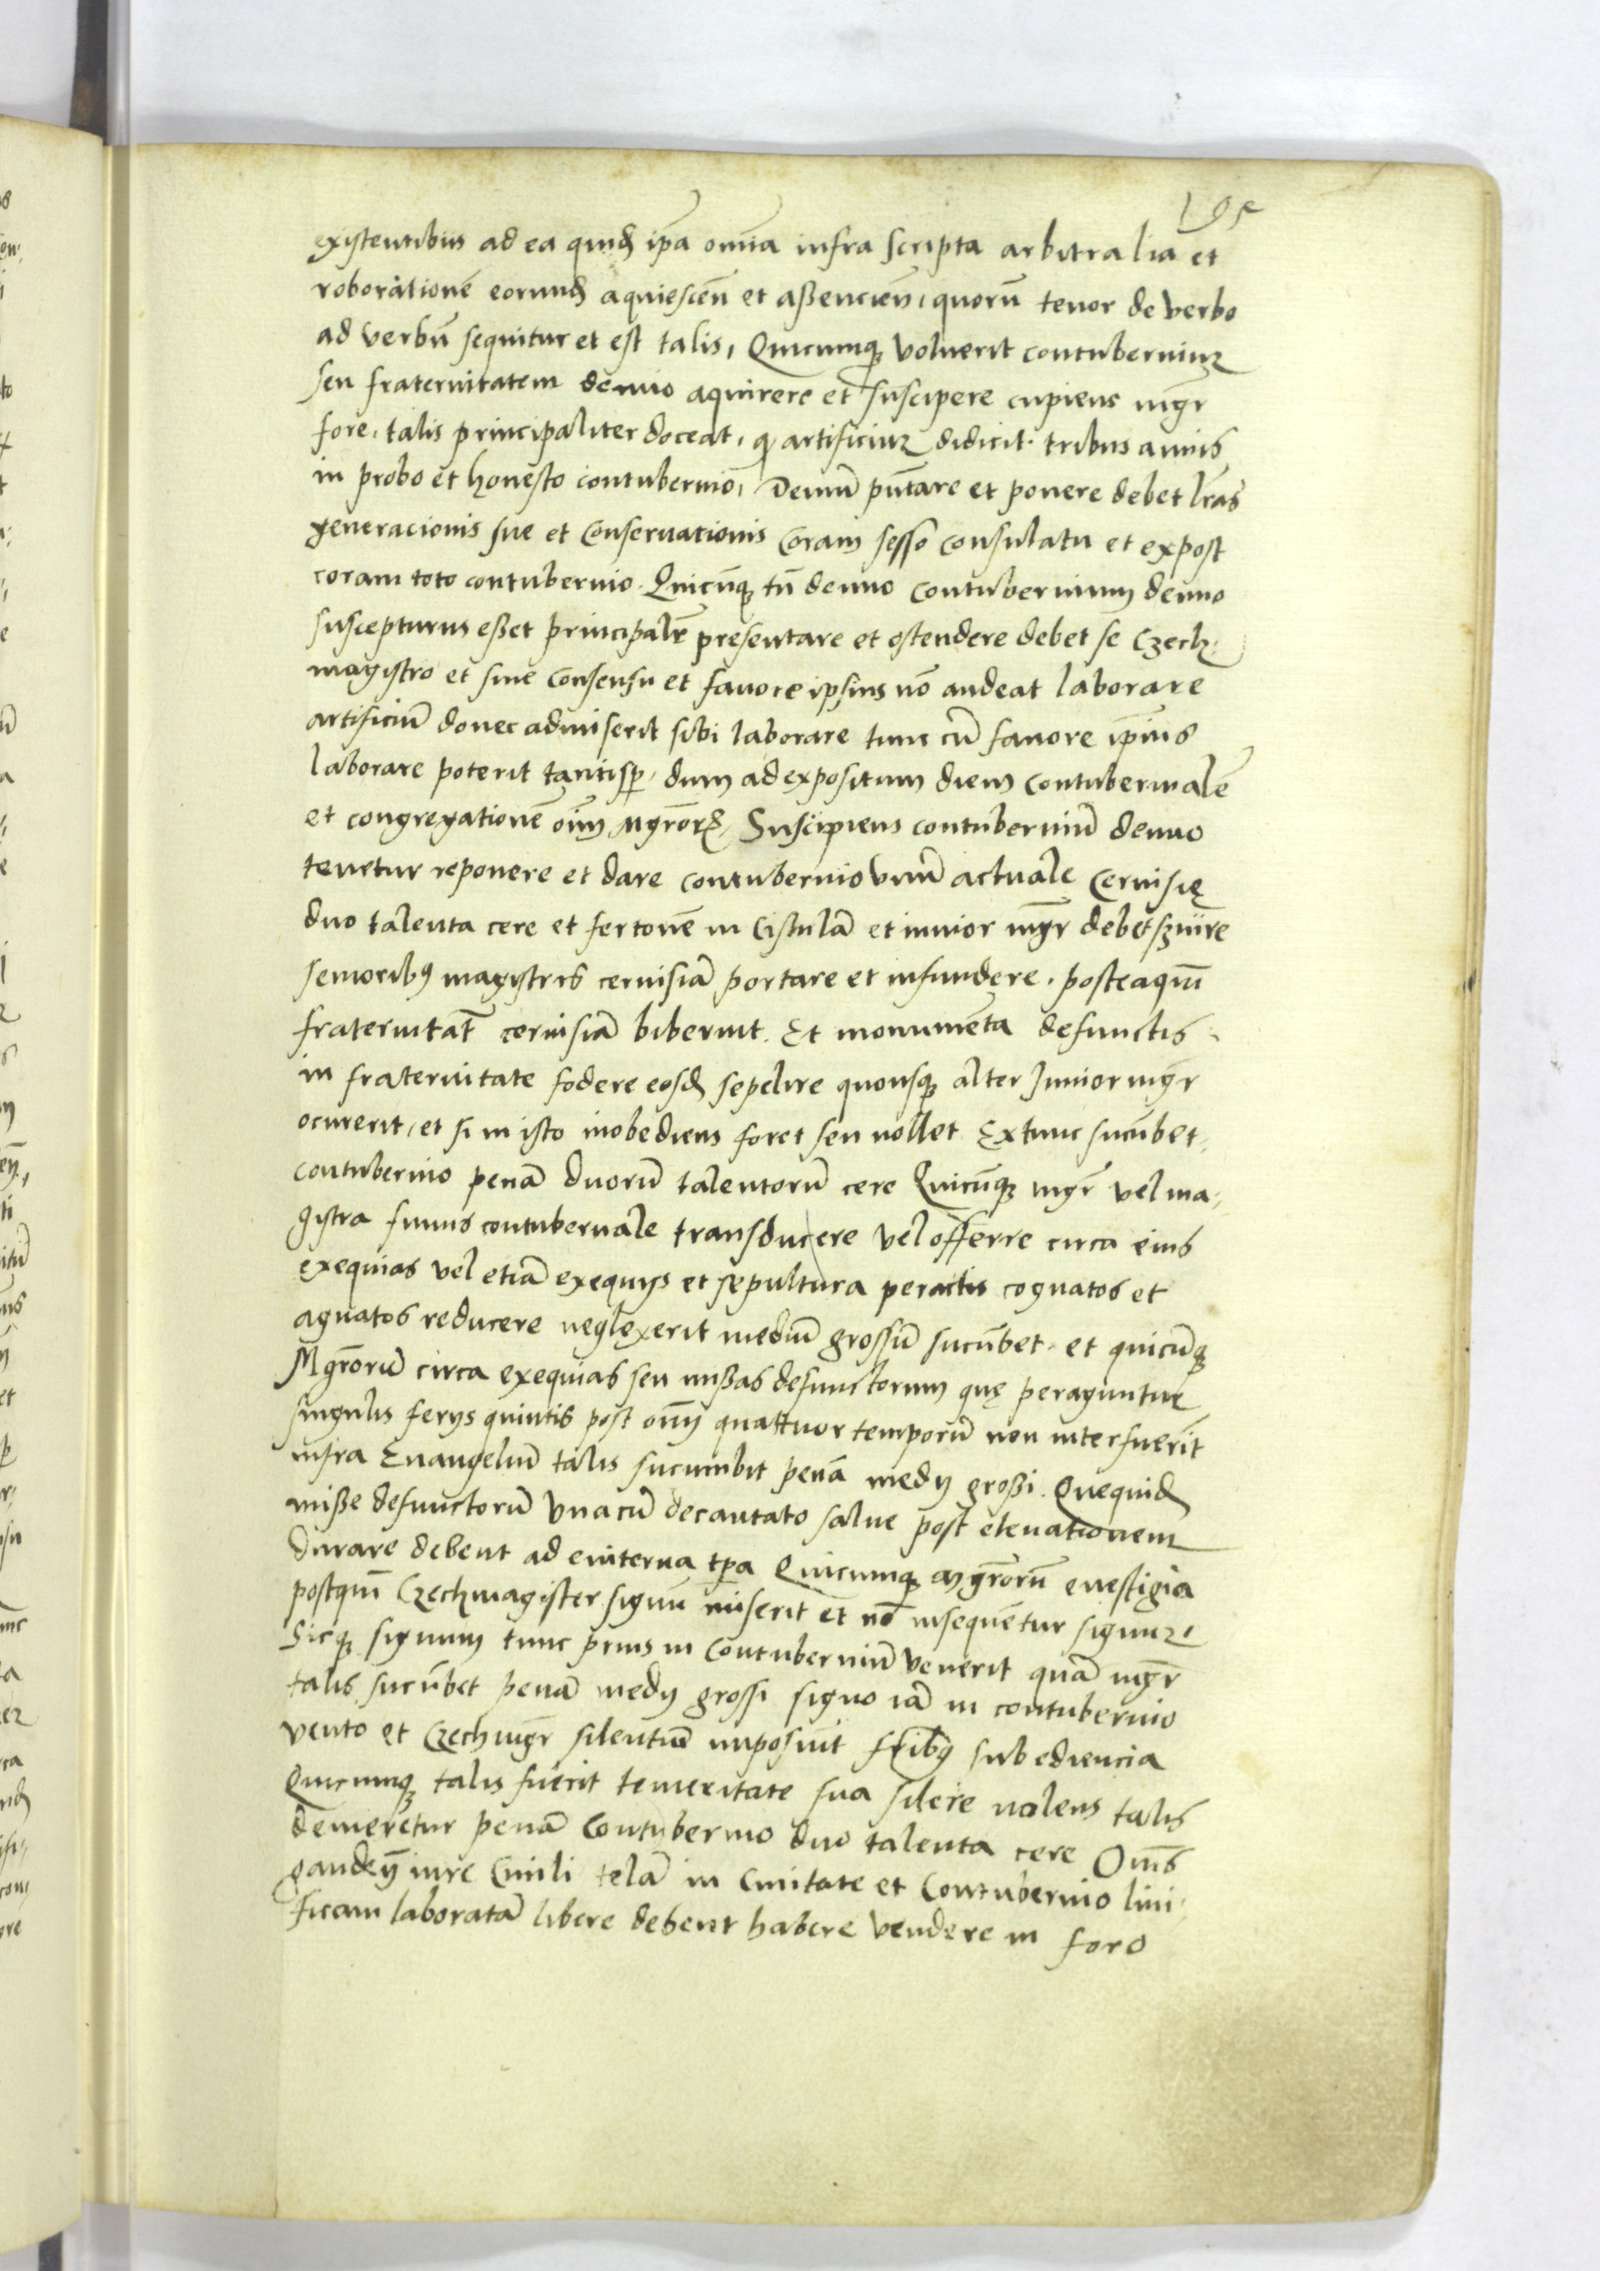 195
existentibus ad ea quid ip̄a om̄ia infra scripta arbitralia et
roborationē eorund aquiescen̄ et assencien̄, quorū tenor de verbo
ad verbū sequitur et est talis, Quicumq voluerit contuberniuz
seu fraternitatem denuo aquirere et suscipere cupiens mgr̄
fore, talis principaliter doceat, q artificiuz didicit tribus annis
in probo et honesto contubernio, Demū pn̄tare et ponere debet lr̄as
generacionis sue et conservationis coram sesso consulatu et expost
coram toto contubernio. Quicūq tn̄ denuo contubernium denuo
suscepturus esset principalr̄ presentare et ostendere debet se Czech
magistro et sine consensu et favore ipsius nō audeat laborare
artificiū donec admiserit sibi laborare tunc cū favore ip̄ius
laborare poterit tantisp, dum ad expositum diem contubernalē
et congregationē oīm Mgr̄or, Suscipiens contuberniū denuo
tenetur reponere et dare contubernio vnū actuale cervisię
duo talenta cere et fertonē in Cistulā et iunior mgr̄ debet szuire
senioribꝰ magistris cervisiā portare et infundere, posteaqm̄
fraternitat̄ cervisiā biberint. Et monumēta defunctis
in fraternitate fodere eosd sepelire quousq alter Junior mgr̄
ocurerit, et si in isto inobediens foret seu nollet Extunc sucūbet
contubernio penā duorū talentorū cere Quicūq mgr̄ vel ma,
gistra funus contubernale transducere vel offerre circa eius
exequias vel etiā exequijs et sepultura peractis cognatos et
agnatos reducere neglexerit mediū grossū sucūbet, et quicūq
Mgr̄orū circa exequias seu missas defunctorum quę peraguntur
singulis ferijs quintis post om̄ quattuor temporū non interfuerīt
infra Evangeliū talis sucumbit penā medij grossi. Quequid
misse defunctorū vnacū decantato salve post elevationem
durare debent ad eviterna tp̄a Quicumq mgr̄orū evestigia
postqm̄ Czechmagister signū miserit et nō insequētur signuz,
Sicq signum tunc prius in contuberniū venerit quā mgr̄
talis sucūbet penā medij grossi signo iā in contubernio
vento et Czechmgr̄ silentiū imposuit fr̄ibꝰ sub ediencia
Quicumq talis fuerit temeritate sua silere nolens talis
demeretur penā contubernio duo talenta cere Om̄s
gauden̄ iure civili telā in civitate et contubernio lini,
ficam laboratā libere debent habere vendere in foro